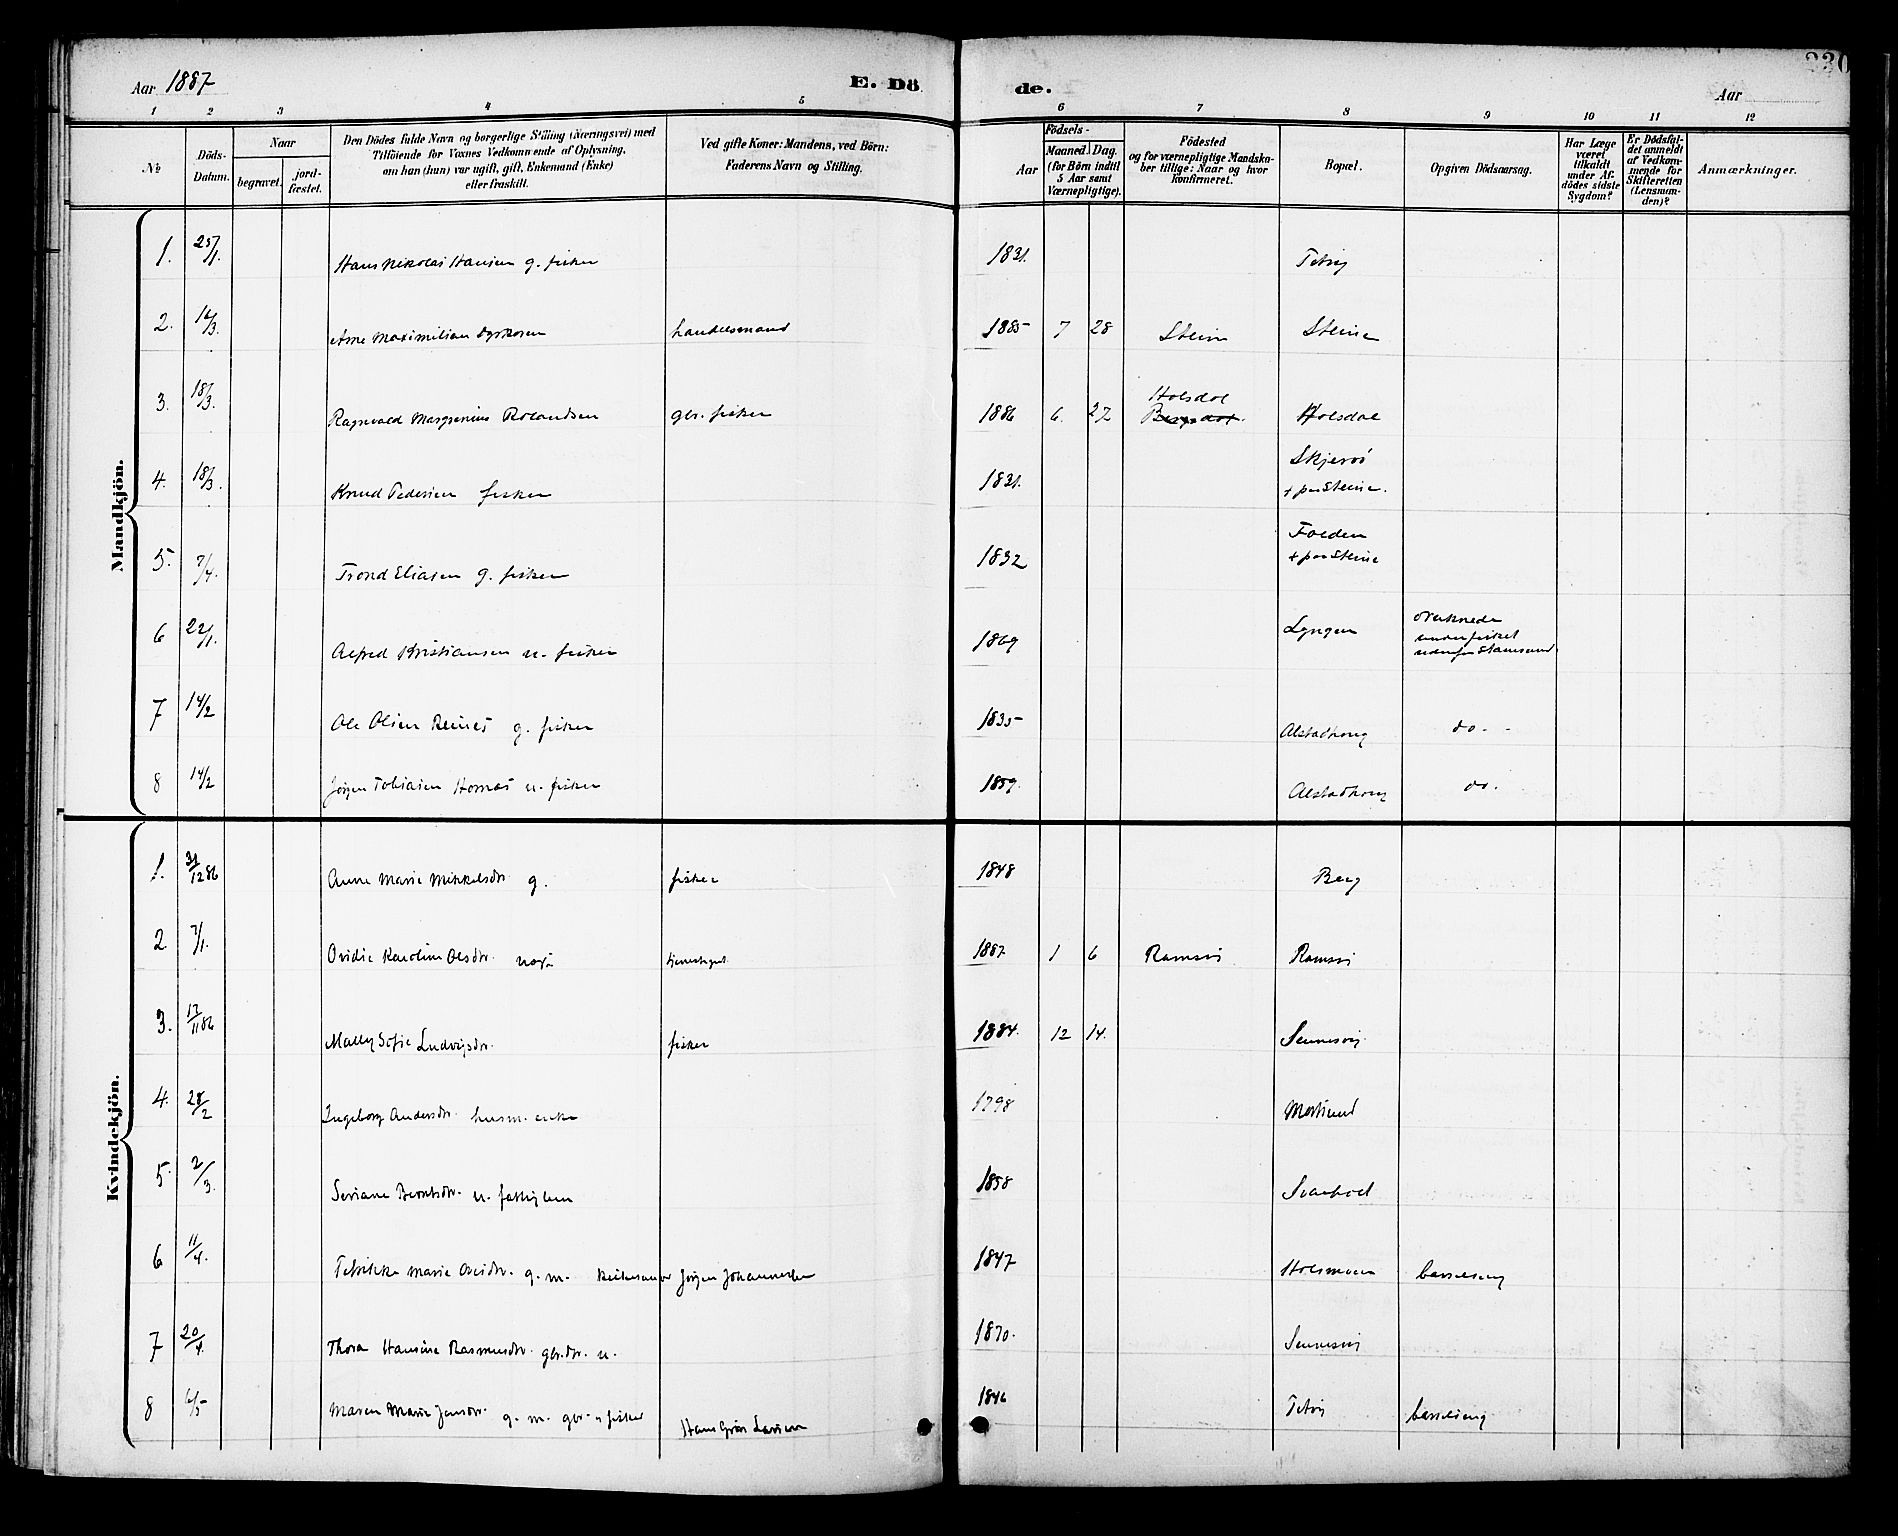 Aar 1887
E. Dö
de.
230
Aar
1 2 3 4 5 6 7 8 9 10 11 12
№
Döds-Datum.
Naar
begravet. jordfæstet.
Den Dödes fulde Navn og borgerlige Stilling (Næringsvei) med
Tilföiende for Voxnes Vedkommende af Oplysning,
om han (hun) var ugift, gift, Enkemand (Enke)
eller fraskilt.
Ved gifte Koner: Mandens, ved Börn:
Faderens Navn og Stilling.
Aar
Födsels-
Maaned. Dag.
(for Börn indtil
5 Aar samt
Værnepligtige).
Födested
og for værnepligtige Mandskaber
tillige: Naar og hvor
konfirmeret.
Bopæl.
Opgiven Dödsaarsag.
Har Læge
været
tilkaldt
under Afdödes
sidste
Sygdom?
Er Dödsfaldet
anmeldt
af Vedkommende
for
Skifteretten
(Lensmanden)?
Anmærkninger.
Mandkjön.
1. 25/1. Hans Nikolai Hansen g. fisker 1831. Petvig
2. 14/3. Arne Maximilian Dyrkoren handelsmand 1885 7 28 Stein Steine
3. 18/3. Ragnvald Margenius Rolandsen gbr. fisker 1886 6. 27 Holsdal Bergsdal. Holsdal
4. 18/3. Knud Pedersen fisker 1831. Skjervö + paa Steine.
5. 7/4. Trond Eliasen g. fisker 1832 Folden + paa Steine
6 22/1. Alfred Kristiansen u. fisker 1869 Lyngen druknede under fisket udenfor Stamsund
7 14/2 Ole Olsen Reines g. fisker 1835 Alstadhoug do.
8 14/2 Jørgen Tobiasen Hornes u. fisker 1859. Alstadhoug do.
Kvindekjön.
1. 31/12 86 Anne Marie Mikkelsdtr g. fisker 1848 Berg
2 7/1. Ovidie Karoline Olsdtr. uægte tjenestegut 1887 1 6 Ramsvi Ramsvi
3. 17/11 86 Mally Sofie Ludvigsdtr. fisker 1884. 12 14. Sennesvig
4. 28/2 Ingeborg Andersdtr. husm. enke 1798 Mortsund
5. 2/3. Seriane Berntsdtr. u. fattiglem 1858 Svarholt
6 11/4. Petrikke Marie Olsdtr. g. m. Kirkesanger Jørgen Johannessen 1847 Holsmoen barselseng
7 20/4. Thora Hansine Rasmusdtr. gbr.dtr. u. 1870. Sennesvig
8 6/5 Maren Marie Jensdtr. g. m. gbr. & fisker Hans Grön Larsen 1846 Petvig barselseng